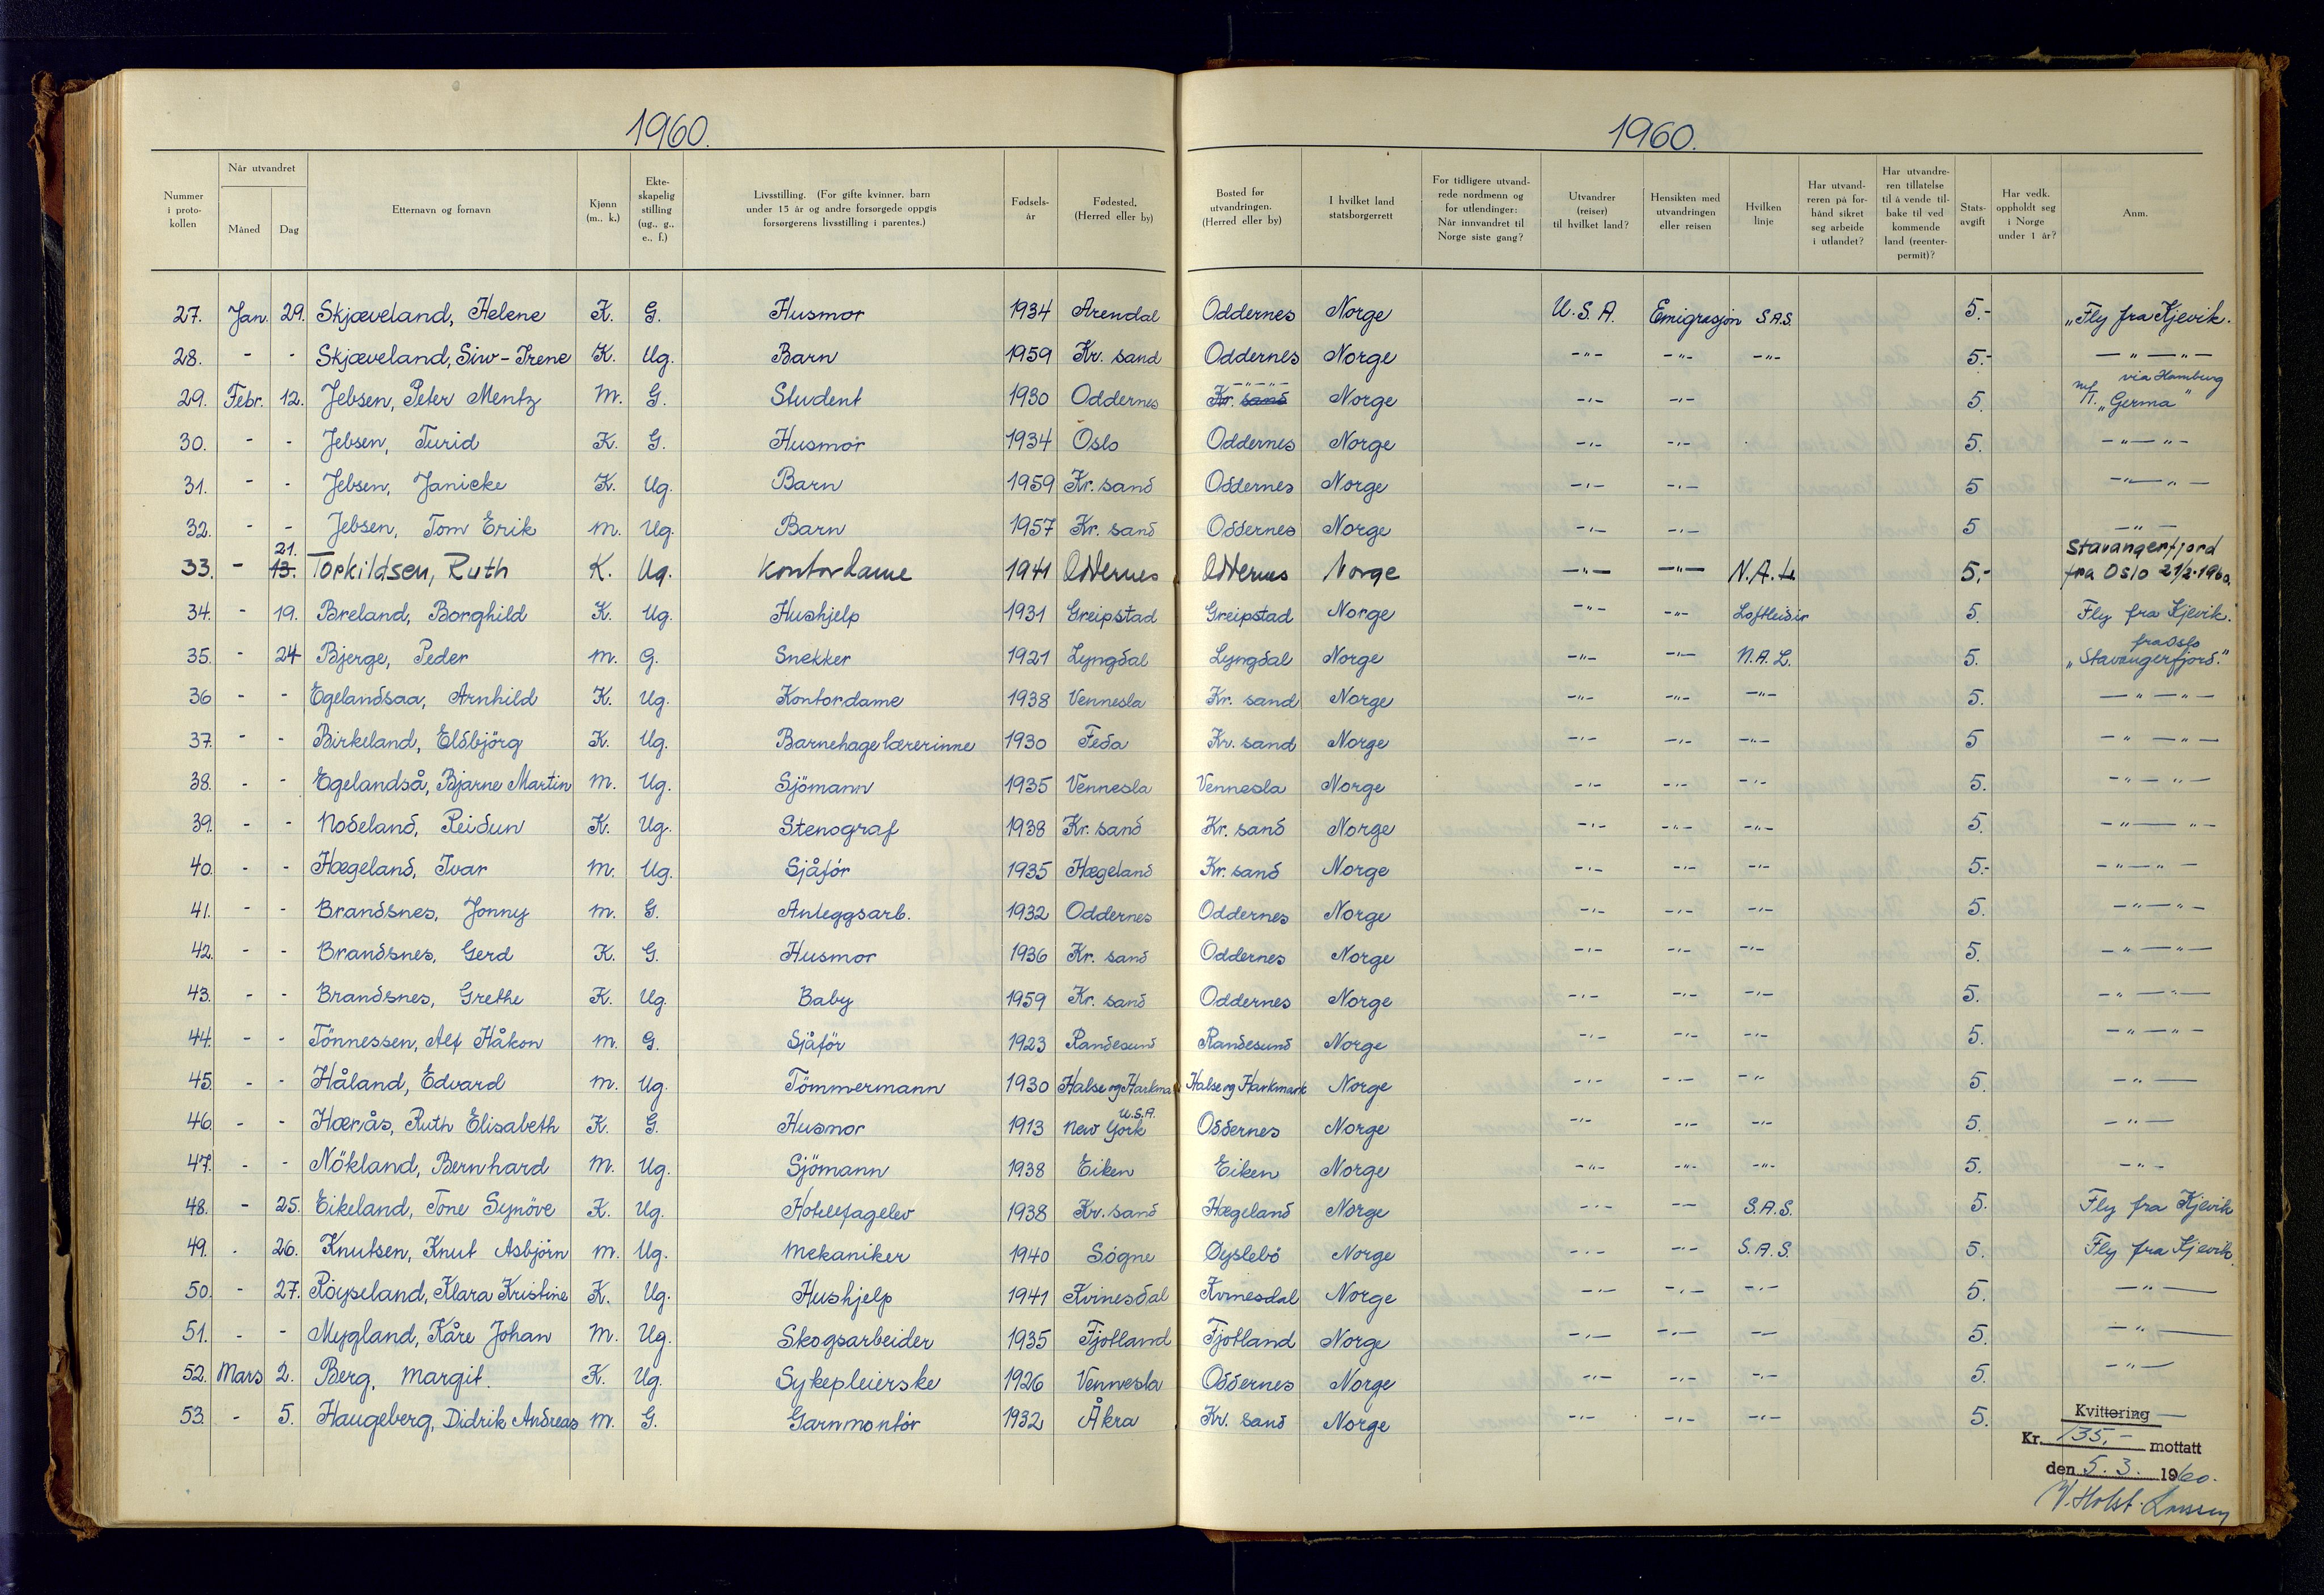 1960. 1960.
Nummer i protokollen | Når utvandret Måned Dag | Etternavn og fornavn | Kjønn (m., k.) | Ekteskapelig stilling (ug., g., e., f.) | Livsstilling. (For gifte kvinner, barn under 15 år og andre forsørgede oppgis forsørgerens livsstilling i parentes.) | Fødselsår | Fødested. (Herred eller by) | Bosted før utvandringen. (Herred eller by) | I hvilket land statsborgerrett | For tidligere utvandrede nordmenn og for utlendinger: Når innvandret til Norge siste gang? | Utvandrer (reiser) til hvilket land? | Hensikten med utvandringen eller reisen | Hvilken linje | Har utvandreren på forhånd sikret seg arbeide i utlandet? | Har utvandreren tillatelse til å vende tilbake til vedkommende land (reenterpermit)? | Statsavgift | Har vedk. oppholdt seg i Norge under 1 år? | Anm.
27. Jan. 29. Skjæveland, Helene K. G. Husmor 1934 Arendal Oddernes Norge U.S.A. Emigrasjon S.A.S. 5.- "Fly fra Kjevik.
28. - - Skjæveland, Siw-Irene K. Ug. Barn 1959 Kr. sand Oddernes Norge -"- -"- -"- 5.- -"-"-
29. Febr. 12. Jebsen, Peter Mentz M. G. Student 1930 Oddernes -"-"- Kr. sand Norge -"- -"- 5. via Hamburg M/T. "Germa"
30. - - Jebsen, Turid K. G. Husmor 1934 Oslo Oddernes Norge -"- -"- 5. -"-"-
31. - - Jebsen, Janicke K. Ug. Barn 1959 Kr. sand Oddernes Norge -"- -"- 5 -"-"-
32. - - Jebsen, Tom Erik M. Ug. Barn 1957 Kr. sand Oddernes Norge -"- -"- 5 -"-
33. - 21. 13. Torkildsen, Ruth K. Ug. Kontordame 1941 Oddernes Oddernes Norge -"- -"- N.A.L. 5.- Stavangerfjord fra Oslo 21/2-1960.
34. - 19. Breland, Borghild K. Ug. Hushjelp 1931 Greipstad Greipstad Norge -"- -"- Loftleidir 5. Fly fra Kjevik.
35. - 24 Bjerge, Peder M. G. Snekker 1921 Lyngdal Lyngdal Norge -"- -"- N.A.L. 5. fra Oslo "Stavangerfjord."
36 - - Egelandsaa, Arnhild K. Ug. Kontordame 1938 Vennesla Kr. sand Norge -"- -"- -"- 5. -"-"-
37. - - Birkeland, Eldbjörg K. Ug. Barnehagelærerinne 1930 Feda Kr. sand Norge -"- -"- -"- 5 -"-"-
38. - - Egelandså, Bjarne Martin M. Ug. Sjömann 1935 Vennesla Vennesla Norge -"- -"- -"- 5. -"-"-
39. - - Nodeland, Reidun K. Ug. Stenograf 1938 Kr. sand Kr. sand Norge -"- -"- -"- 5. -"-"-
40. - - Hægeland, Ivar M. Ug. Sjåför 1935 Hægeland Kr. sand Norge -"- -"- -"- 5.- -"-"-
41. - - Brandsnes, Jonny M. G. Anleggsarb. 1932 Oddernes Oddernes Norge -"- -"- -"- 5. -"-"-
42. - - Brandsnes, Gerd K. G. Husmor 1936 Kr. sand Oddernes Norge -"- -"- -"- 5. -"-"-
43. - - Brandsnes, Grethe K. Ug. Baby 1959 Kr. sand Oddernes Norge -"- -"- -"- 5. -"-"-
44. - - Tönnessen, Alf Håkon M. G. Sjåför 1923 Randesund Randesund Norge -"- -"- -"- 5. -"-"-
45. - - Håland, Edvard M. Ug. Tömmermann 1930 Halse og Harkma Halse og Harkmark Norge -"- -"- -"- 5. -"-
46. - - Hærås, Ruth Elisabeth K. G. Husmor 1913 New York U.S.A. Oddernes Norge -"- -"- -"- 5. -"-
47. - - Nökland, Bernhard M. Ug. Sjömann 1938 Eiken Eiken Norge -"- -"- -"- 5. -"-
48. - 25. Eikeland, Tone Synöve K. Ug. Hotellfagelev 1938 Kr. sand Hægeland Norge -"- -"- S.A.S. 5. Fly fra Kjevik
49. - 26. Knutsen, Knut Asbjörn M. Ug. Mekaniker 1940 Sögne Øyslebö Norge -"- -"- S.A.S. 5. Fly fra Kjevik.
50. - 27. Röyseland, Klara Kristine K. Ug. Hushjelp 1941 Kvinesdal Kvinesdal Norge -"- -"- -"- 5. -"-
51. - - Mygland, Kåre Johan M. Ug. Skogsarbeider 1935 Fjotland Fjotland Norge -"- -"- -"- 5. -"-
52. Mars 2. Berg, Margit. K. Ug. Sykepleierske 1926 Vennesla Oddernes Norge -"- -"- -"- 5. -"-
53. - 5. Haugeberg, Didrik Andreas M. G. Garnmontör 1932 Åkra Kr. sand Norge -"- -"- -"- 5.
Kvittering
Kr. 135,- mottatt
den 5. 3. 1960.